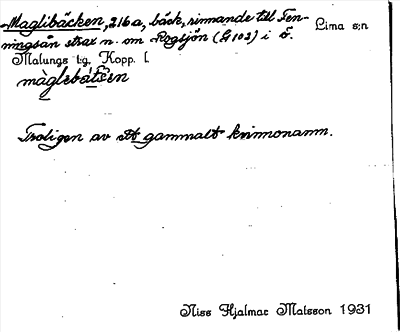 Maglibäcken, 216a, bäck, rinnande till Fen-
ningsån strax n. om Rogsjön (G 103) i ö.
Lima s:n
Malungs t:g, Kopp. l.
màglebä̀ttjen
Troligen av ett gammalt kvinnonamn.
Niss Hjalmar Matsson 1931